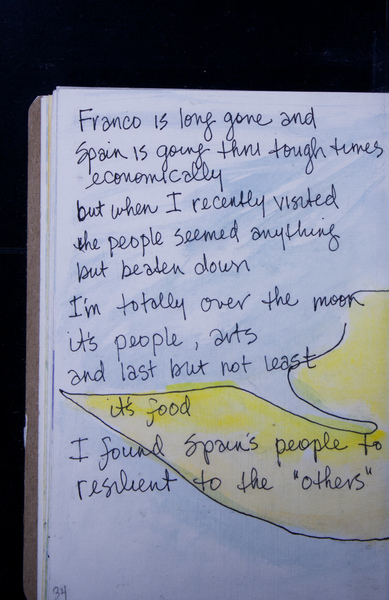 Franco is long gone and
Spain is going thru tough times
economically
but when I recently visited
the people seemed anything
but beaten down
I'm totally over the moon
it's people, arts
and last but not least
it's food
I found Spain's people to
resilient to the "others"
34